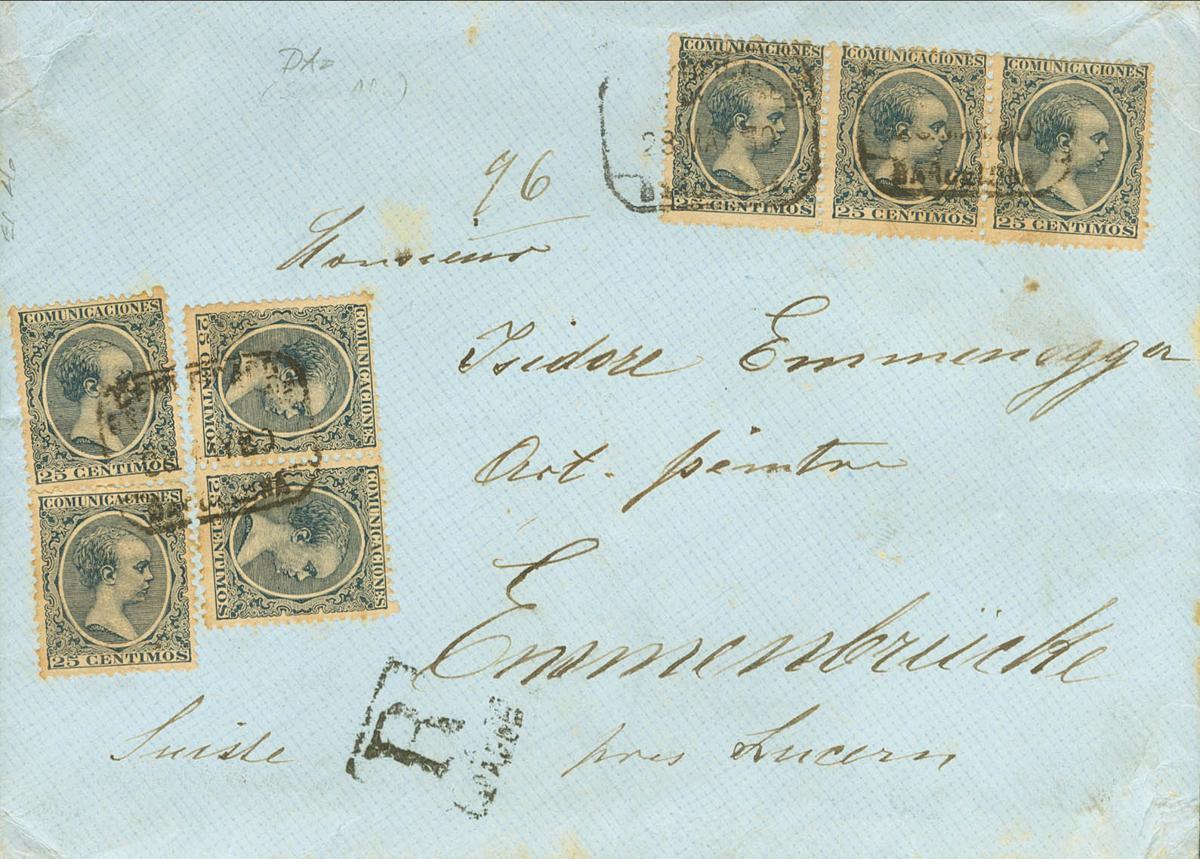 COMUNICACIONES COMUNICACIONES COMUNICACIONES
25 CENTIMOS 25 CENTIMOS 25 CENTIMOS
BARCELONA
96
Monsieur
Isidore Emmenegger
Art. peintre
Emmenbrücke
Suisse près Lucern
COMUNICACIONES
25 CENTIMOS
COMUNICACIONES
25 CENTIMOS
COMUNICACIONES
25 CENTIMOS
COMUNICACIONES
25 CENTIMOS
R